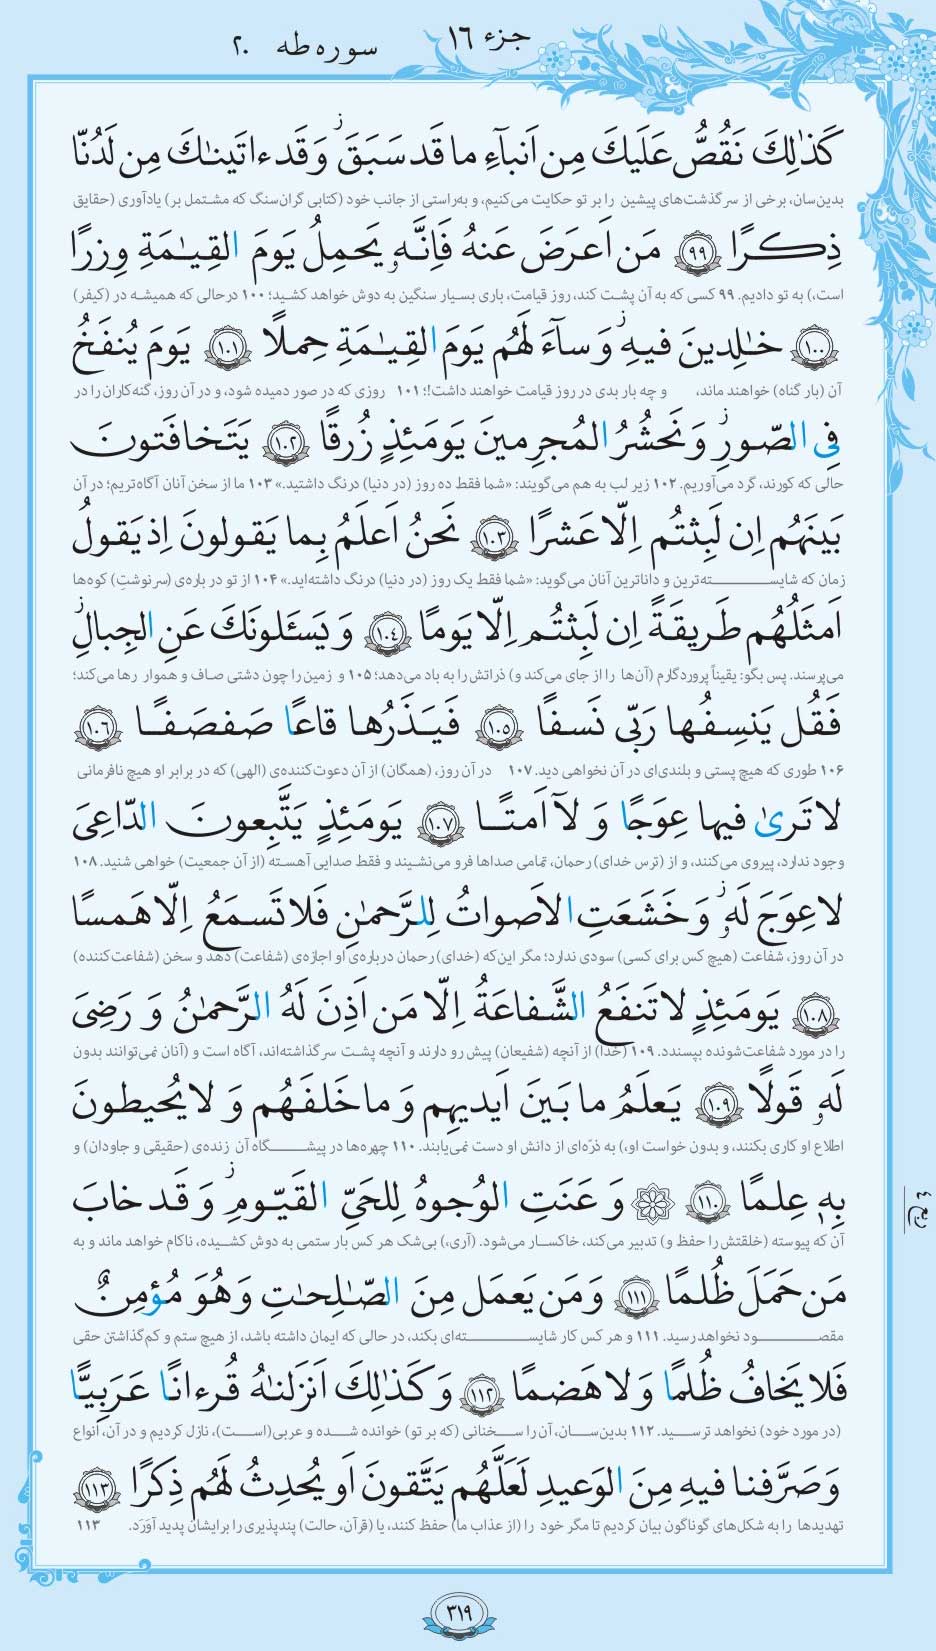 جزء ۱۶
سوره طه ۲۰
كَذٰلِكَ نَقُصُّ عَلَيكَ مِن اَنبآءِ ما قَد سَبَقَ ۚ وَ قَد ءاتَينٰكَ مِن لَدُنّا
بدین‌سان، برخی از سرگذشت‌های پیشین را بر تو حکایت می‌کنیم، و به‌راستی از جانب خود (کتابی گران‌سنگ که مشتمل بر) یادآوری (حقایق
ذِكرًا ﴿۹۹﴾ مَن اَعرَضَ عَنهُ فَاِنَّهٗ يَحمِلُ يَومَ القِيٰمَةِ وِزرًا
است،) به تو دادیم. ۹۹ کسی که به آن پشت کند، روز قیامت، باری بسیار سنگین به دوش خواهد کشید؛ ۱۰۰ درحالی که همیشه در (کیفر)
﴿۱۰۰﴾ خٰلِدينَ فيهِ ز وَ سآءَ لَهُم يَومَ القِيٰمَةِ حِملًا ﴿۱۰۱﴾ يَومَ يُنفَخُ
آن (بار گناه) خواهند ماند، و چه بار بدی در روز قیامت خواهند داشت!؛ ۱۰۱ روزی که در صور دمیده شود، و در آن روز، گنه‌کاران را در
فِي الصّورِ ز وَ نَحشُرُ المُجرِمينَ يَومَئِذٍ زُرقًا ﴿۱۰۲﴾ يَتَخافَتونَ
حالی که کورند، گرد می‌آوریم. ۱۰۲ زیر لب به هم می‌گویند: «شما فقط ده روز (در دنیا) درنگ داشتید.» ۱۰۳ ما از سخن آنان آگاه‌تریم؛ در آن
بَينَهُم اِن لَبِثتُم اِلّا عَشرًا ﴿۱۰۳﴾ نَحنُ اَعلَمُ بِما يَقولونَ اِذ يَقولُ
زمان که شایسته‌ترین و داناترین آنان می‌گوید: «شما فقط یک روز (در دنیا) درنگ داشته‌اید.» ۱۰۴ از تو در باره‌ی (سرنوشتِ) کوه‌ها
اَمثَلُهُم طَريقَةً اِن لَبِثتُم اِلّا يَومًا ﴿۱۰۴﴾ وَ يَسـَٔلونَكَ عَنِ الجِبالِ ز
می‌پرسند. پس بگو: یقیناً پروردگارم (آن‌ها را از جای می‌کند و) ذراتش را به باد می‌دهد؛ ۱۰۵ و زمین را چون دشتی صاف و هموار رها می‌کند؛
فَقُل يَنسِفُها رَبّي نَسفًا ﴿۱۰۵﴾ فَيَذَرُها قاعًا صَفصَفًا ﴿۱۰۶﴾
۱۰۶ طوری که هیچ پستی و بلندی‌ای در آن نخواهی دید. ۱۰۷ در آن روز، (همگان) از آن دعوت‌کننده‌ی (الهی) که در برابر او هیچ نافرمانی
لا تَرىٰ فيها عِوَجًا وَ لآ اَمتًا ﴿۱۰۷﴾ يَومَئِذٍ يَتَّبِعونَ الدّاعِيَ
وجود ندارد، پیروی می‌کنند، و از (ترس خدای) رحمان، تمامی صداها فرو می‌نشیند و فقط صدایی آهسته (از آن جمعیت) خواهی شنید. ۱۰۸
لا عِوَجَ لَهٗ ز وَ خَشَعَتِ الاَصواتُ لِلرَّحمٰنِ فَلا تَسمَعُ اِلّا هَمسًا
در آن روز، شفاعت (هیچ کس برای کسی) سودی ندارد؛ مگر این‌که (خدای) رحمان درباره‌ی او اجازه‌ی (شفاعت) دهد و سخن (شفاعت‌کننده)
﴿۱۰۸﴾ يَومَئِذٍ لا تَنفَعُ الشَّفاعَةُ اِلّا مَن اَذِنَ لَهُ الرَّحمٰنُ وَ رَضِيَ
را در مورد شفاعت‌شونده بپسندد. ۱۰۹ (خدا) از آنچه (شفیعان) پیش رو دارند و آنچه پشت سر گذاشته‌اند، آگاه است و (آنان نمی‌توانند بدون
لَهٗ قَولًا ﴿۱۰۹﴾ يَعلَمُ ما بَينَ اَيديهِم وَ ما خَلفَهُم وَ لا يُحيطونَ
اطلاع او کاری بکنند، و بدون خواست او،) به ذرّه‌ای از دانش او دست نمی‌یابند. ۱۱۰ چهره‌ها در پیشگاه آن زنده‌ی (حقیقی و جاودان) و
بِهٖ عِلمًا ﴿۱۱۰﴾ ۞ وَ عَنَتِ الوُجوهُ لِلحَيِّ القَيّومِ ز وَ قَد خابَ
ربع ٤
آن که پیوسته (خلقتش را حفظ و) تدبیر می‌کند، خاکسار می‌شود. (آری،) بی‌شک هر کس بار ستمی به دوش کشیده، ناکام خواهد ماند و به
مَن حَمَلَ ظُلمًا ﴿۱۱۱﴾ وَ مَن يَعمَل مِنَ الصّٰلِحٰتِ وَ هُوَ مُؤمِنٌ
مقصود نخواهد رسید. ۱۱۱ و هر کس کار شایسته‌ای بکند، در حالی که ایمان داشته باشد، از هیچ ستم و کم‌گذاشتن حقی
فَلا يَخافُ ظُلمًا وَ لا هَضمًا ﴿۱۱۲﴾ وَ كَذٰلِكَ اَنزَلنٰهُ قُرءانًا عَرَبِيًّا
(در مورد خود) نخواهد ترسید. ۱۱۲ بدین‌سان، آن را سخنانی (که بر تو) خوانده شده و عربی(است)، نازل کردیم و در آن، انواع
وَ صَرَّفنا فيهِ مِنَ الوَعيدِ لَعَلَّهُم يَتَّقونَ اَو يُحدِثُ لَهُم ذِكرًا ﴿۱۱۳﴾
تهدیدها را به شکل‌های گوناگون بیان کردیم تا مگر خود را (از عذاب ما) حفظ کنند، یا (قرآن، حالت) پندپذیری را برایشان پدید آوَرَد. ۱۱۳
۳۱۹